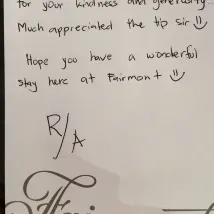 for your kindness and generosity.
Much appreciated the tip sir
Hope you have a wonderful
stay here at Fairmont
R/A